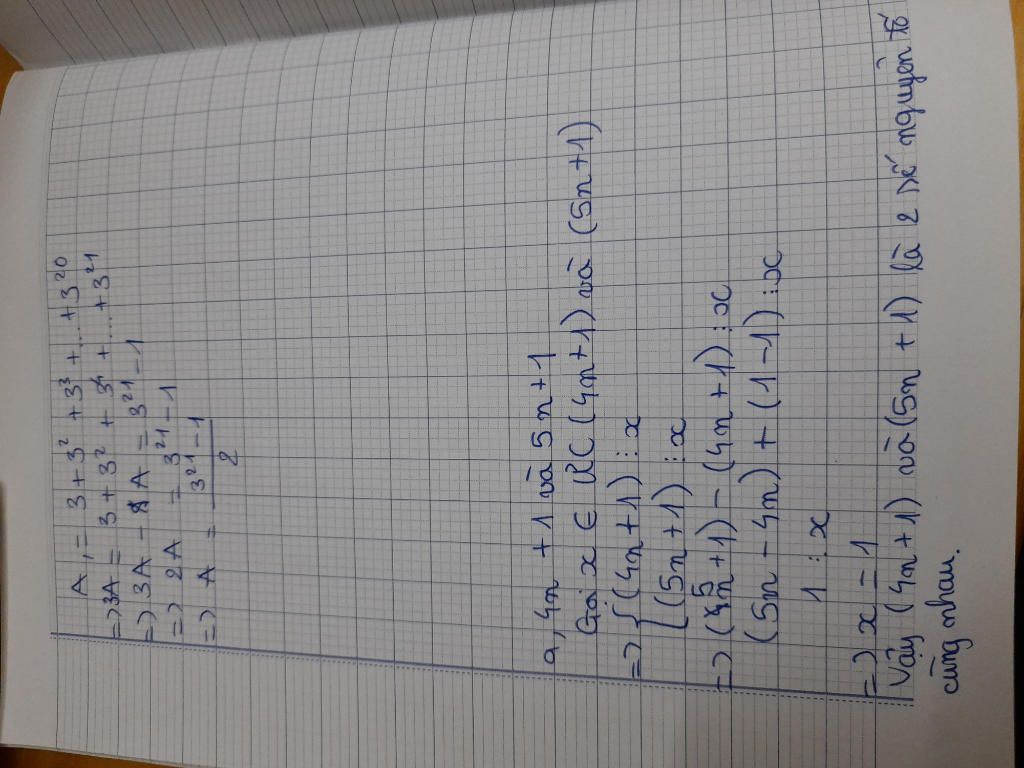 A, = 3 + 3² + 3³ + .... + 3²⁰
=> 3A = 3 + 3² + 3⁴ + .... + 3²¹
=> 3A - A = 3²¹ - 1
=> 2A = 3²¹ - 1
=> A = (3²¹ - 1) / 2
a, 4n + 1 và 5n + 1
Gọi x ∈ ƯC (4n + 1) và (5n + 1)
=> { (4n + 1) : x
(5n + 1) : x
=> (5n + 1) - (4n + 1) : x
(5n - 4n) + (1 - 1) : x
1 : x
=> x = 1
Vậy (4n + 1) và (5n + 1) là 2 số nguyên tố
cùng nhau.